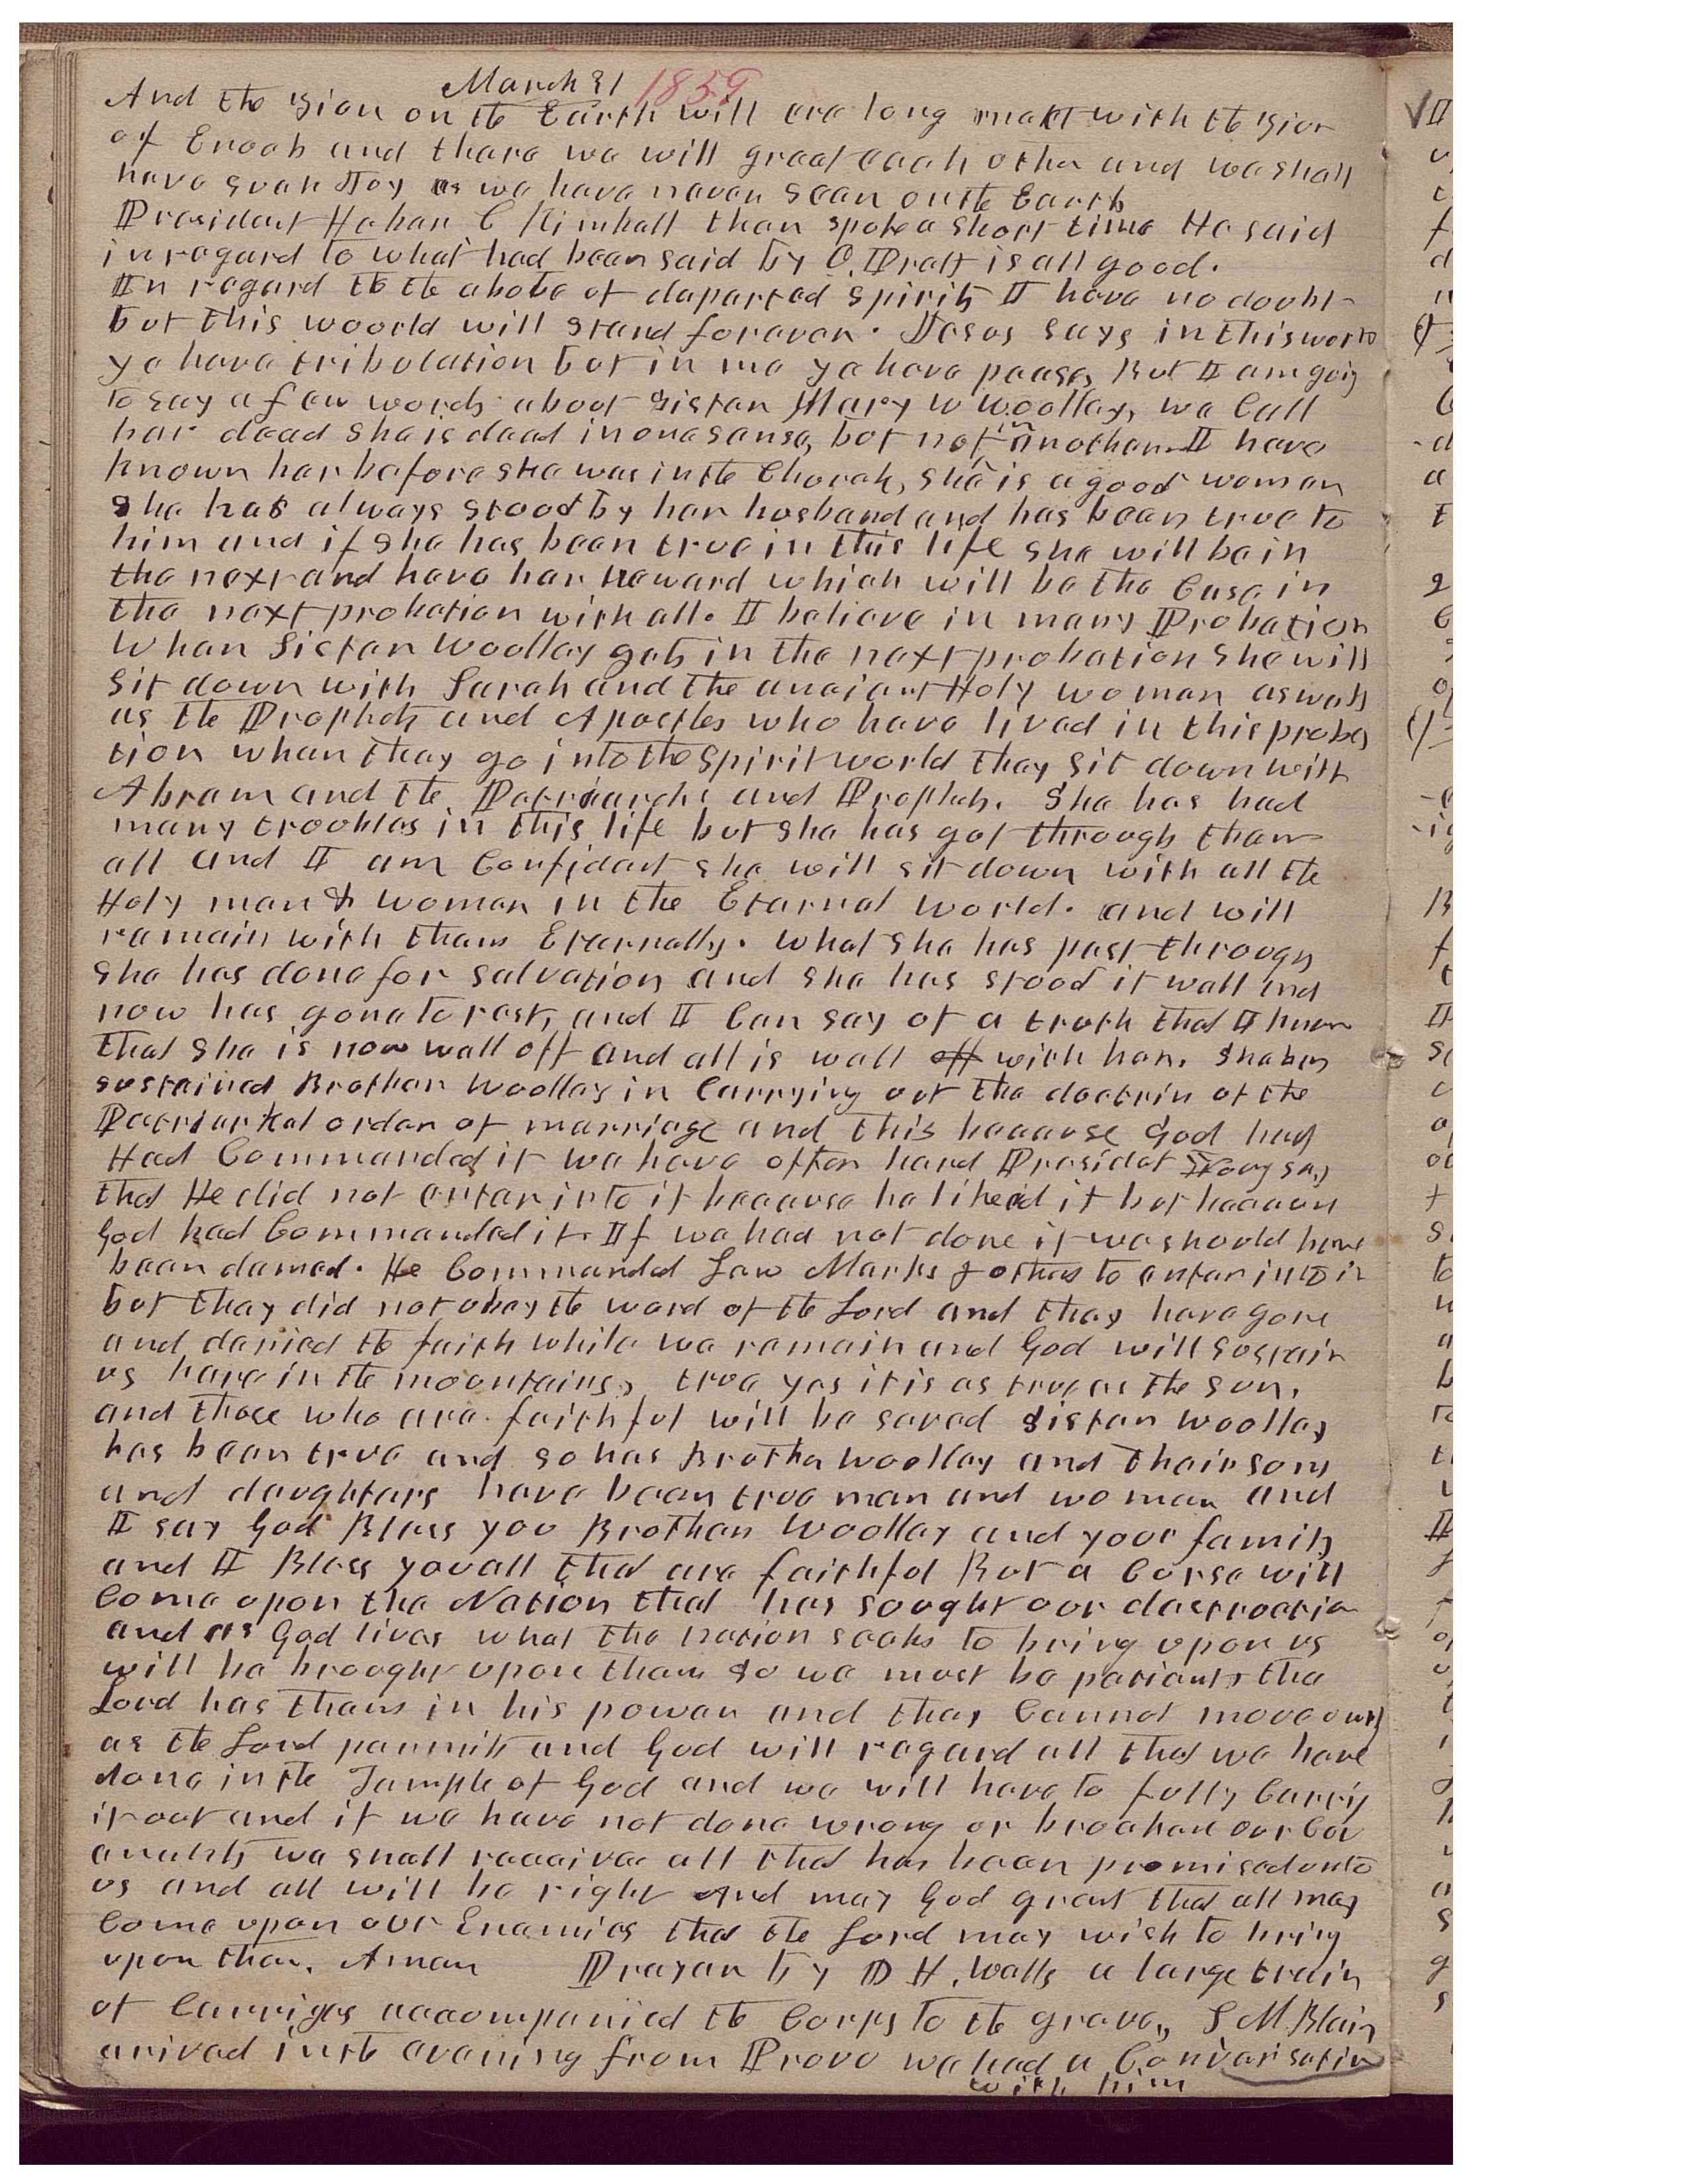 March 31 1859
And the Zion on the Earth will ere long meet with the Zion
of Enoch and there we will greet each other and we shall
have such Joy as we have never seen on the Earth
President Heber C Kimball then spoke a short time He said
in regard to what had been said by O. Pratt is all good.
In regard to the abobe of departed spirits I have no doubt
but this woorld will stand forever. Jesus says in this world
ye have tribulation but in me ye have peace, But I am going
to say a few words about Sister Mary W Woolley, we Call
her dead she is dead in one sense, but not in another. I have
known her before she was in the Church, she is a good woman
she has always stood by her husband and has been true to
him and if she has been true in this life she will be in
the next and have her reward which will be the Case in
the next probation with all. I believe in many Probation
When Sister Woolley gets in the next probation she will
sit down with Sarah and the ancient Holy women as well
as the Prophets and Apostles who have lived in this proba
tion when they go into the spirit world they sit down with
Abram and the Patriarchs and Prophets. She has had
many troubles in this life but she has got through them
all and I am Confident she will sit down with all the
Holy men & women in the Eternal world. and will
remain with them Eternally. what she has past through
she has done for salvation and she has stood it well and
now has gone to rest, and I Can say of a truth that I know
that she is now well off and all is well off with her. she has
sustained Brother Woolley in Carrying out the doctrin of the
Patriarkal order of marriage and this because God had
Had Commanded it we have often hard Presidet Young say
that He did not enter into it because he likeed it but because
God had Commanded it. If we had not done it we should have
been damed. He Commanded Law Marks & others to enter into it
but they did not obey the word of the Lord and they have gone
and denied the faith while we remain and God will sustain
us here in the mountains, true yes it is as true as the sun,
and those who are faithful will be saved Sister Woolley
has been true and so has Brother Woolley and their sons
and daughters have been true men and women and
I say God Bless you Brother Woolley and your family
and I Bless you all that are faithful But a Curse will
Come upon the Nation that has sought our destruction
and as God lives what the nation seeks to bring upon us
will be brought upon them so we must be patient, the
Lord has them in his power and they Cannot move ownly
as the Lord permits and God will regard all that we have
done in the Temple of God and we will have to fully Carry
it out and if we have not done wrong or broaken our Cov
enants we shall receive all that has been promised unto
us and all will be right And may God grant that all may
Come upon our Enemies that the Lord may wish to bring
upon them. Amen Prayer by D H. Wells a large train
of Carriges accompanied the Corps to the grave,, S M Blair
arived in the evening from Provo we had a Conversation
with him